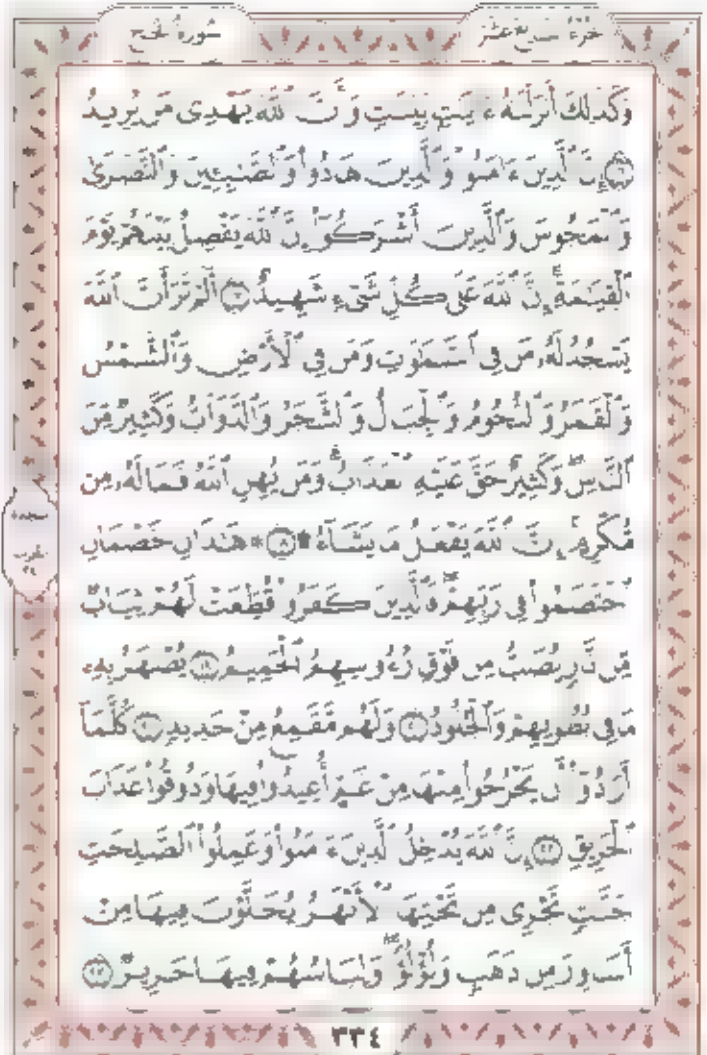 سورة الحج
الجزء السابع عشر
وَكَذَٰلِكَ أَنزَلْنَٰهُ ءَايَٰتٍۭ بَيِّنَٰتٍ وَأَنَّ ٱللَّهَ يَهْدِى مَن يُرِيدُ
١٦ إِنَّ ٱلَّذِينَ ءَامَنُوا۟ وَٱلَّذِينَ هَادُوا۟ وَٱلصَّٰبِـِٔينَ وَٱلنَّصَٰرَىٰ
وَٱلْمَجُوسَ وَٱلَّذِينَ أَشْرَكُوٓا۟ إِنَّ ٱللَّهَ يَفْصِلُ بَيْنَهُمْ يَوْمَ
ٱلْقِيَٰمَةِ ۚ إِنَّ ٱللَّهَ عَلَىٰ كُلِّ شَىْءٍ شَهِيدٌ ١٧ أَلَمْ تَرَ أَنَّ ٱللَّهَ
يَسْجُدُ لَهُۥ مَن فِى ٱلسَّمَٰوَٰتِ وَمَن فِى ٱلْأَرْضِ وَٱلشَّمْسُ
وَٱلْقَمَرُ وَٱلنُّجُومُ وَٱلْجِبَالُ وَٱلشَّجَرُ وَٱلدَّوَآبُّ وَكَثِيرٌ مِّنَ
ٱلنَّاسِ ۖ وَكَثِيرٌ حَقَّ عَلَيْهِ ٱلْعَذَابُ ۗ وَمَن يُهِنِ ٱللَّهُ فَمَا لَهُۥ مِن
مُّكْرِمٍ ۚ إِنَّ ٱللَّهَ يَفْعَلُ مَا يَشَآءُ ۩ ١٨ ۞ هَٰذَانِ خَصْمَانِ
ٱخْتَصَمُوا۟ فِى رَبِّهِمْ ۖ فَٱلَّذِينَ كَفَرُوا۟ قُطِّعَتْ لَهُمْ ثِيَابٌ
مِّن نَّارٍ يُصَبُّ مِن فَوْقِ رُءُوسِهِمُ ٱلْحَمِيمُ ١٩ يُصْهَرُ بِهِۦ
مَا فِى بُطُونِهِمْ وَٱلْجُلُودُ ٢٠ وَلَهُم مَّقَٰمِعُ مِنْ حَدِيدٍ ٢١ كُلَّمَآ
أَرَادُوٓا۟ أَن يَخْرُجُوا۟ مِنْهَا مِنْ غَمٍّ أُعِيدُوا۟ فِيهَا وَذُوقُوا۟ عَذَابَ
ٱلْحَرِيقِ ٢٢ إِنَّ ٱللَّهَ يُدْخِلُ ٱلَّذِينَ ءَامَنُوا۟ وَعَمِلُوا۟ ٱلصَّٰلِحَٰتِ
جَنَّٰتٍ تَجْرِى مِن تَحْتِهَا ٱلْأَنْهَٰرُ يُحَلَّوْنَ فِيهَا مِنْ
أَسَاوِرَ مِن ذَهَبٍ وَلُؤْلُؤًا ۖ وَلِبَاسُهُمْ فِيهَا حَرِيرٌ ٢٣
سجدة
٣٣٤